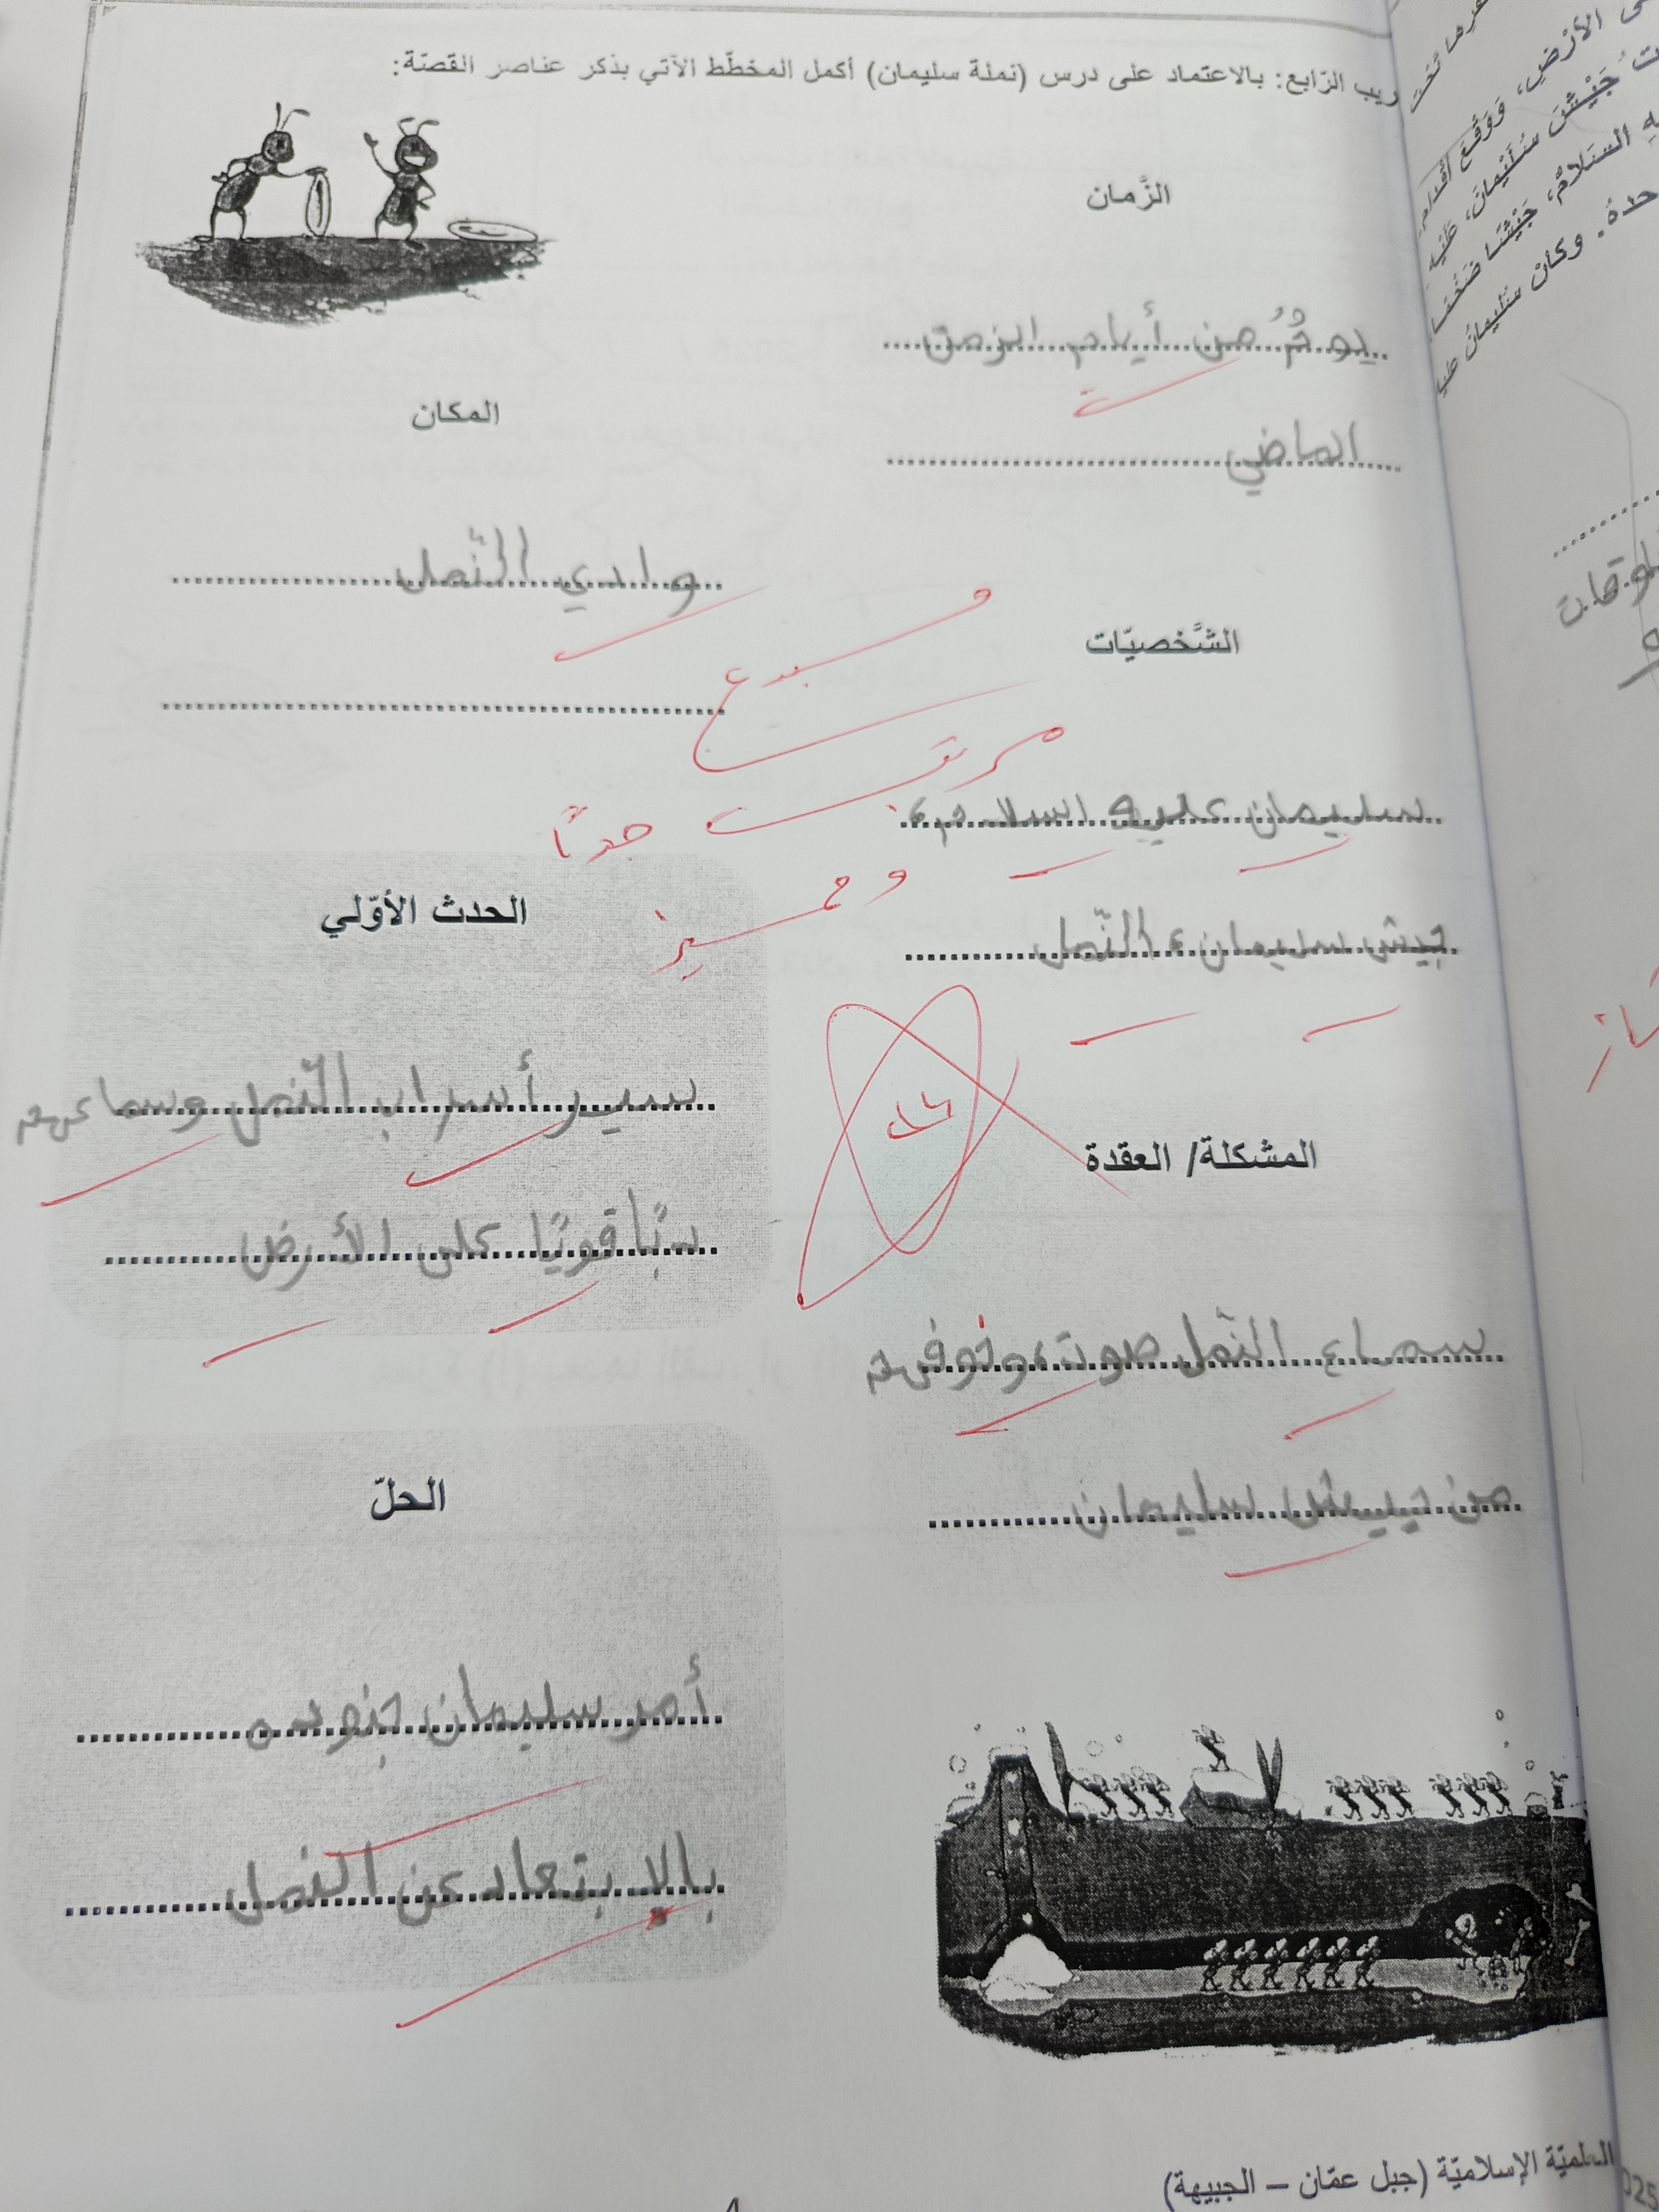 ريب الرّابع: بالاعتماد على درس (نملة سليمان) أكمل المخطّط الآتي بذكر عناصر القصّة:
الزَّمان
يومٌ من أيام الزمن
الماضي
المكان
وادي النّمل
الشَّخصيّات
سليمان عليه اسلام،
جيش سليمان، النّمل
مبدع
مرتب
جدًا
ومميز
الحدث الأوّلي
سير أسراب النّمل وسماعه
دبًّا قويًا على الأرض
المشكلة/ العقدة
سماع النّمل صوت، وخوفه
من جيش سليمان
الحلّ
أمر سليمان جنوده
بالابتعاد عن النمل
العلميّة الإسلاميّة (جبل عمّان – الجبيهة)
تحت
الأرْضِ، وَوَقْعَ أقْدامِ
جَيْشَ سُلَيْمانَ، عَلَيْهِ
السَّلامُ، جَيْشًا ضَخْمًا
وكانَ سُليمانُ
025